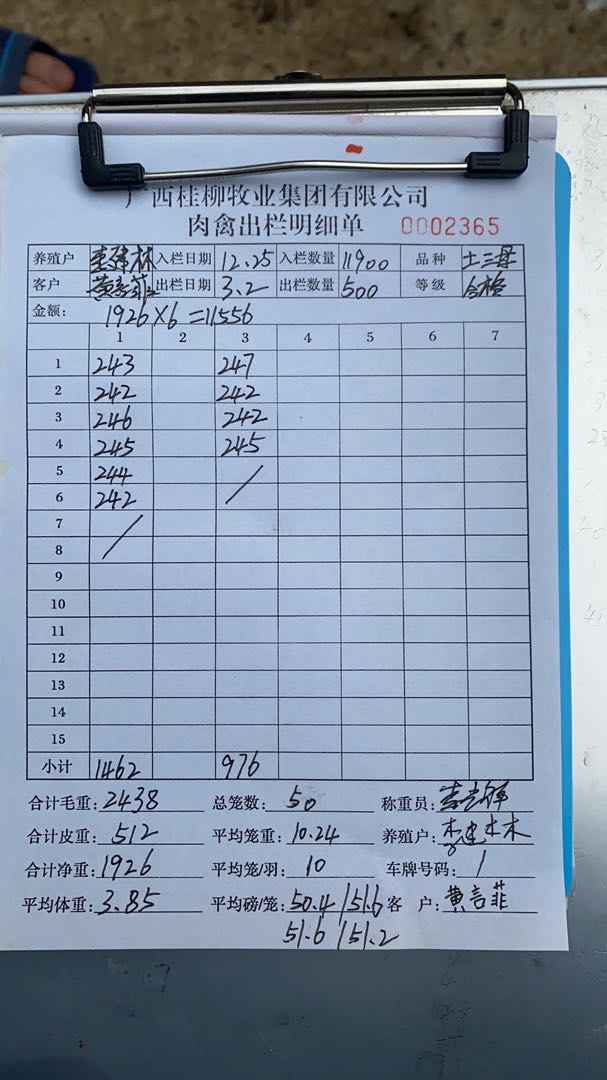 广西桂柳牧业集团有限公司
肉禽出栏明细单 0002365
养殖户 李建林 入栏日期 12.25 入栏数量 11900 品种 土三母
客户 黄言菲 出栏日期 3.2 出栏数量 500 等级 合格
金额: 1926×6=11556
1 2 3 4 5 6 7
1 243 247
2 242 242
3 246 242
4 245 245
5 244 /
6 242
7 /
8
9
10
11
12
13
14
15
小计 1462 976
合计毛重: 2438 总笼数: 50 称重员:
合计皮重: 512 平均笼重: 10.24 养殖户: 李建林
合计净重: 1926 平均笼/羽: 10 车牌号码: 1
平均体重: 3.85 平均磅/笼: 50.4/51.6 客户: 黄言菲
51.6/51.2